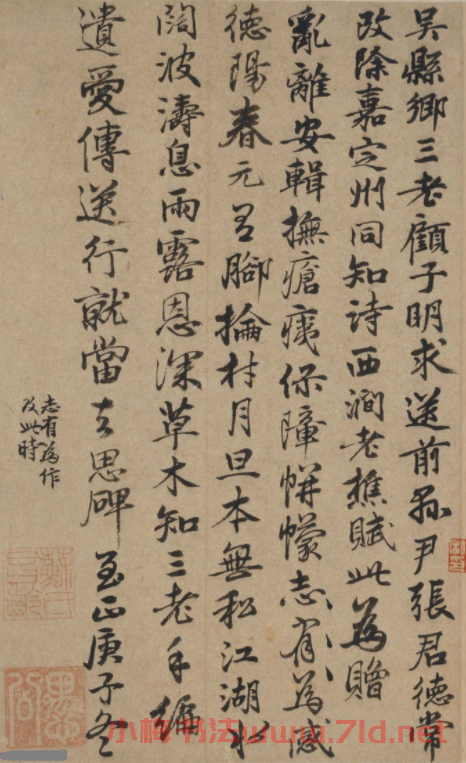 吳縣鄉三老顧子明求送前縣尹張君德常
改除嘉定州同知詩西澗老樵賦此為贈
亂離安輯撫瘡痍保障帡幪志有為感
德陽春元有腳掄材月旦本無私江湖水
闊波濤息雨露恩深草木知三老手編
遺愛傳送行就當去思碑 至正庚子冬
志有為作
及此時
书法www.7ld.net